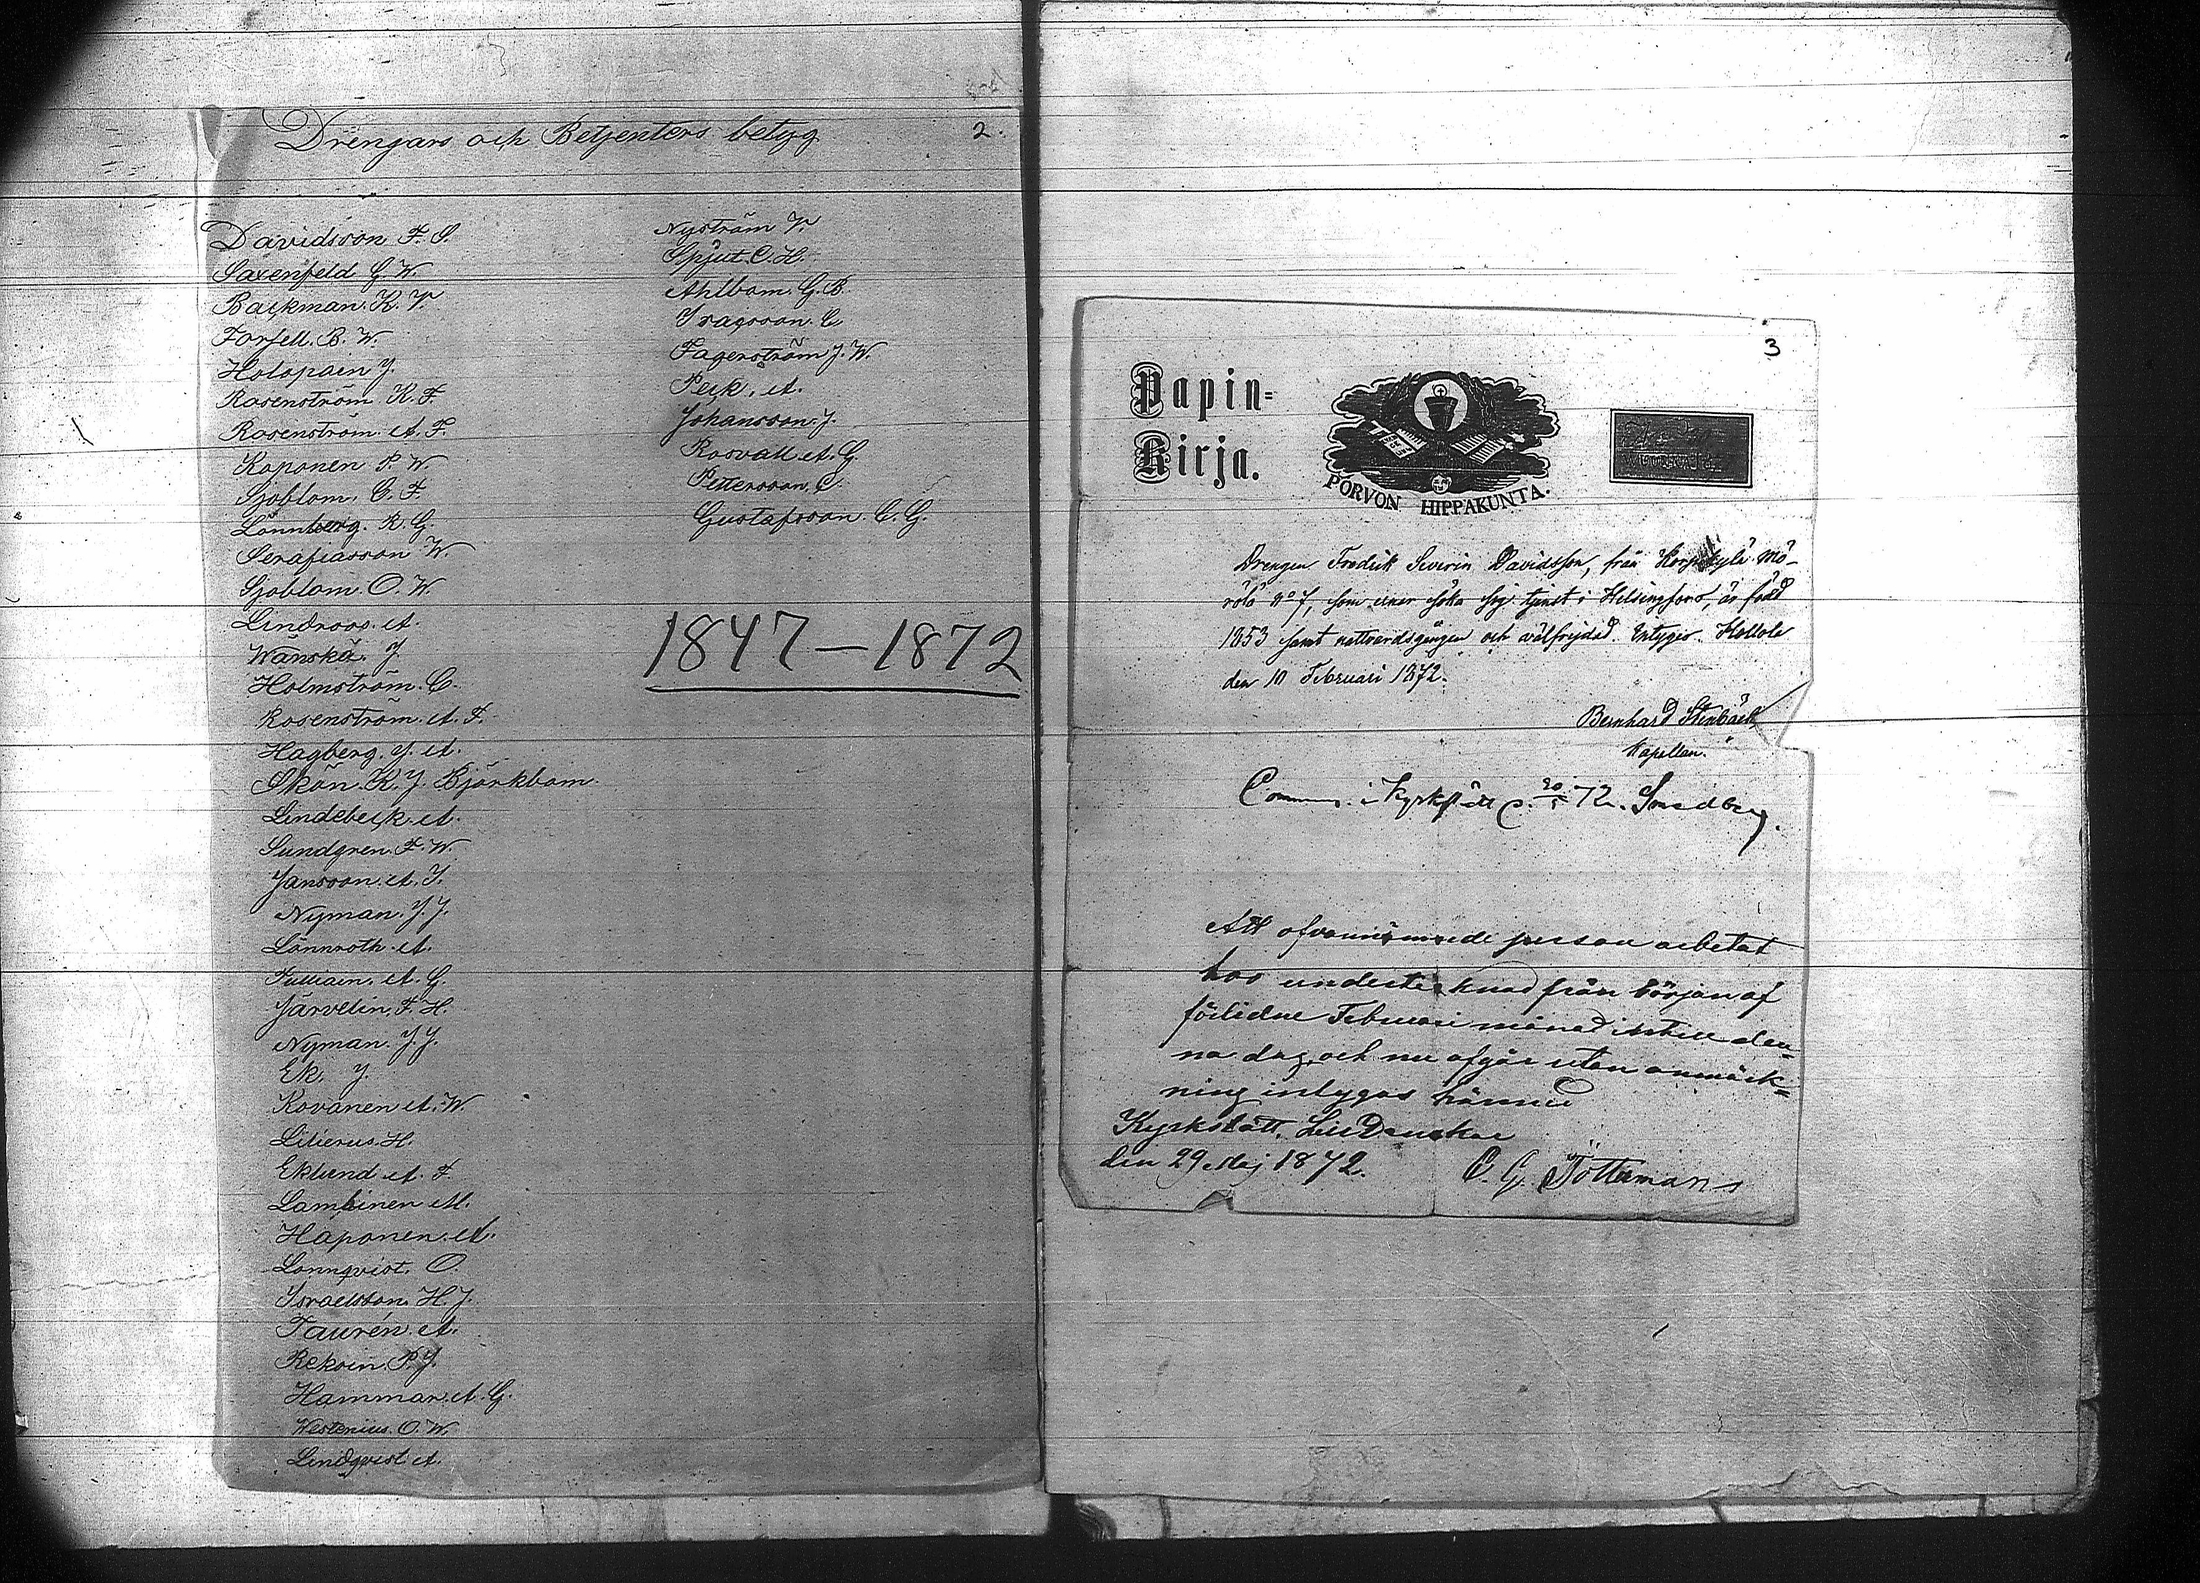 Drengars och Betjenters betyg
2.
Davidsson F. S.
Saxenfeld G. W.
Backman. K. V
Forsell. B. W.
Holopain J.
Rosenström. K. F.
Rosenström. A. F.
Koponen P. W.
Sjöblom. C. F.
Lönnberg. R. G.
Serafiasson W.
Sjöblom. O. W.
Lindroos. A.
Wänskä. J.
Holmström. C.
Rosenström. A. F.
Hagberg. J. A.
Skön. K. J. Björkbom.
Lindebeck. A.
Sundgren. F. W.
Jansson. A. I.
Nyman. J. J.
Lönnroth. A.
A. G.
Järvelin. F. H.
Nyman. J. J.
Ek. J.
Kovanen A. W.
Lilierus. H.
Eklund A. F.
Lambinen M.
Haponen. A.
Lönnqvist. O.
Israelsson. H. J.
Taurén. A.
Reksin. P. J.
Hammar. A. G.
Westenius. O. W.
Lindqvist A.
Nyström V.
Spjut. C. H.
Ahlbom. G. B.
C.
Fagerström J. W.
Peck. A.
Johansson. J.
Rosvall A. G.
Pettersson. C.
Gustafsson. C. G.
1847 — 1872
3
Papin=
Kirja.
PORVON HIPPAKUNTA.
Drengen Fredrik Severin Davidsson, från Mö-
rölä No 7, som ärnar söka sig tjenst i Helsingfors, är född
1853 samt nattvardsgången och välfrejdad. Intygas. Hollola
den 10 Februari 1872.
Bernhard Stenbäck
Kapellan.
Commun. i Kyrkslätt d. 20/5 72. Smedberg.
Att ofvannämnde person arbetat
hos undertecknad från början af
förlidne Februari månad intill den-
na dag, och nu afgår utan anmärk-
ning intygas härmed
Kyrkslätt,
den 29 Maj 1872. C. G. Tötterman